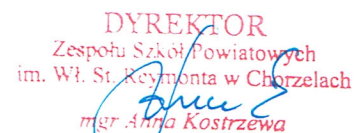 DYREKTOR
Zespołu Szkół Powiatowych
im. Wł. St. Reymonta w Chorzelach
mgr Anna Kostrzewa